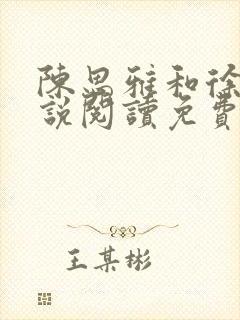 陳思雅和徐
說閱讀免費
王某彬